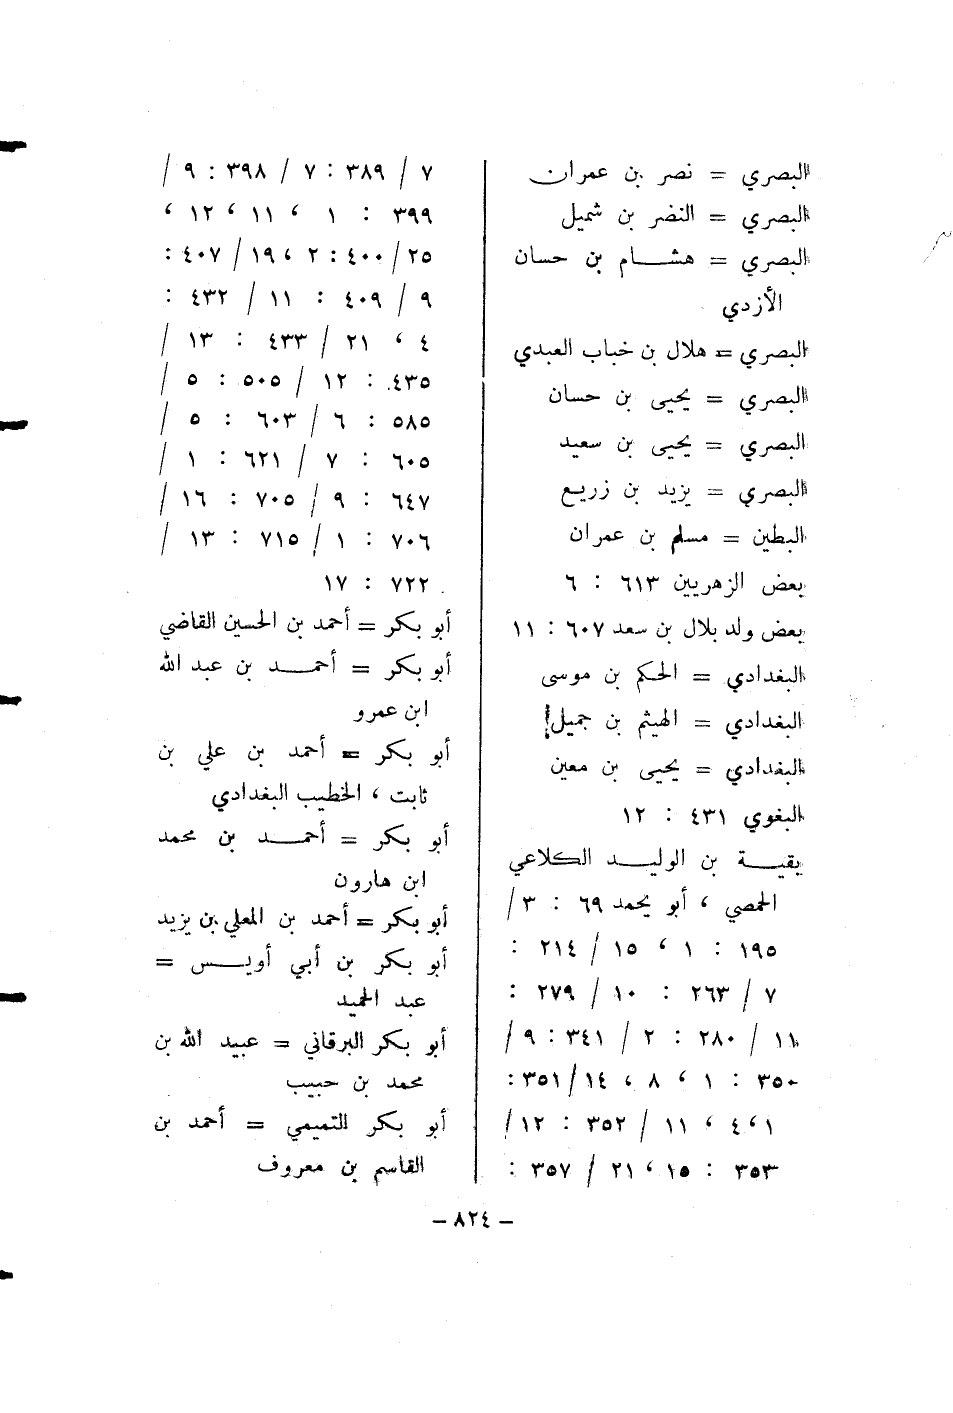 البصري = نصر بن عمران
البصري = النضر بن شميل
البصري = هشام بن حسان
الأزدي
البصري = هلال بن خباب العبدي
البصري = يحيى بن حسان
البصري = يحيى بن سعيد
البصري = يزيد بن زريع
البطين = مسلم بن عمران
بعض الزهريين ٦١٣ : ٦
بعض ولد بلال بن سعد ٦٠٧ : ١١
البغدادي = الحكم بن موسى
البغدادي = الهيثم بن جميل
البغدادي = يحيى بن معين
البغوي ٤٣١ : ١٢
بقية بن الوليد الكلاعي
الحمصي ، أبو يحمد ٦٩ : ٣ /
١٩٥ : ١ ، ١٥ / ٢١٤ :
٧ / ٢٦٣ : ١٠ / ٢٧٩ :
١١ / ٢٨٠ : ٢ / ٣٤١ : ٩ /
٣٥٠ : ١ ، ٨ ، ١٤ / ٣٥١ :
١ ، ٤ ، ١١ / ٣٥٢ : ١٢ /
٣٥٣ : ١٥ ، ٢١ / ٣٥٧ :
٧ / ٣٨٩ : ٧ / ٣٩٨ : ٩ /
٣٩٩ : ١ ، ١١ ، ١٢ ،
٢٥ / ٤٠٠ : ٢ ، ١٩ / ٤٠٧ :
٩ / ٤٠٩ : ١١ / ٤٣٢ :
٤ ، ٢١ / ٤٣٣ : ١٣ /
٤٣٥ : ١٢ / ٥٠٥ : ٥ /
٥٨٥ : ٦ / ٦٠٣ : ٥ /
٦٠٥ : ٧ / ٦٢١ : ١ /
٦٤٧ : ٩ / ٧٠٥ : ١٦ /
٧٠٦ : ١ / ٧١٥ : ١٣ /
٧٢٢ : ١٧
أبو بكر = أحمد بن الحسين القاضي
أبو بكر = أحمد بن عبد الله
ابن عمرو
أبو بكر = أحمد بن علي بن
ثابت ، الخطيب البغدادي
أبو بكر = أحمد بن محمد
ابن هارون
أبو بكر = أحمد بن المعلي بن يزيد
أبو بكر بن أبي أويس =
عبد الحميد
أبو بكر البرقاني = عبيد الله بن
محمد بن حبيب
أبو بكر التميمي = أحمد بن
القاسم بن معروف
– ٨٢٤ –